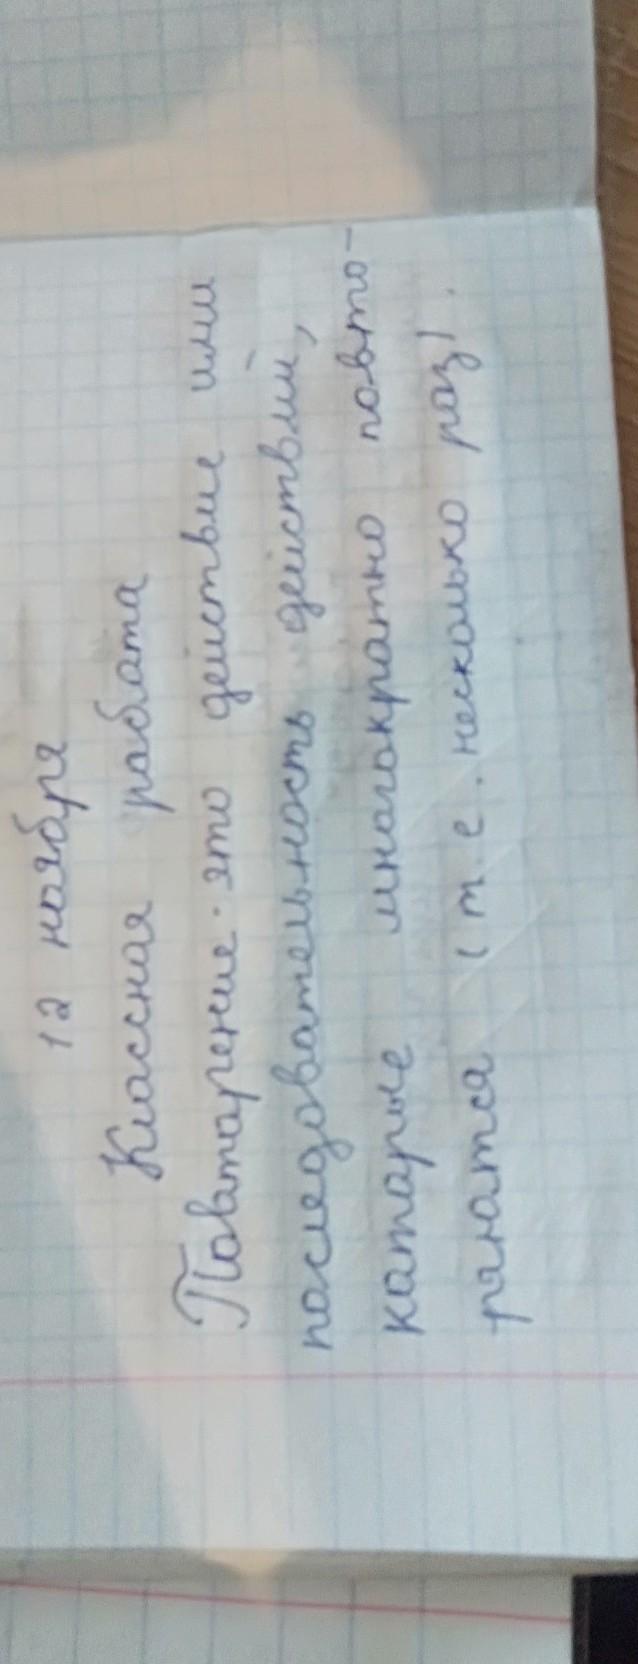 12 ноября
Классная работа
Повторение - это действие или
последовательность действий,
которые многократно повто-
рянотся (т.е. несколько раз).